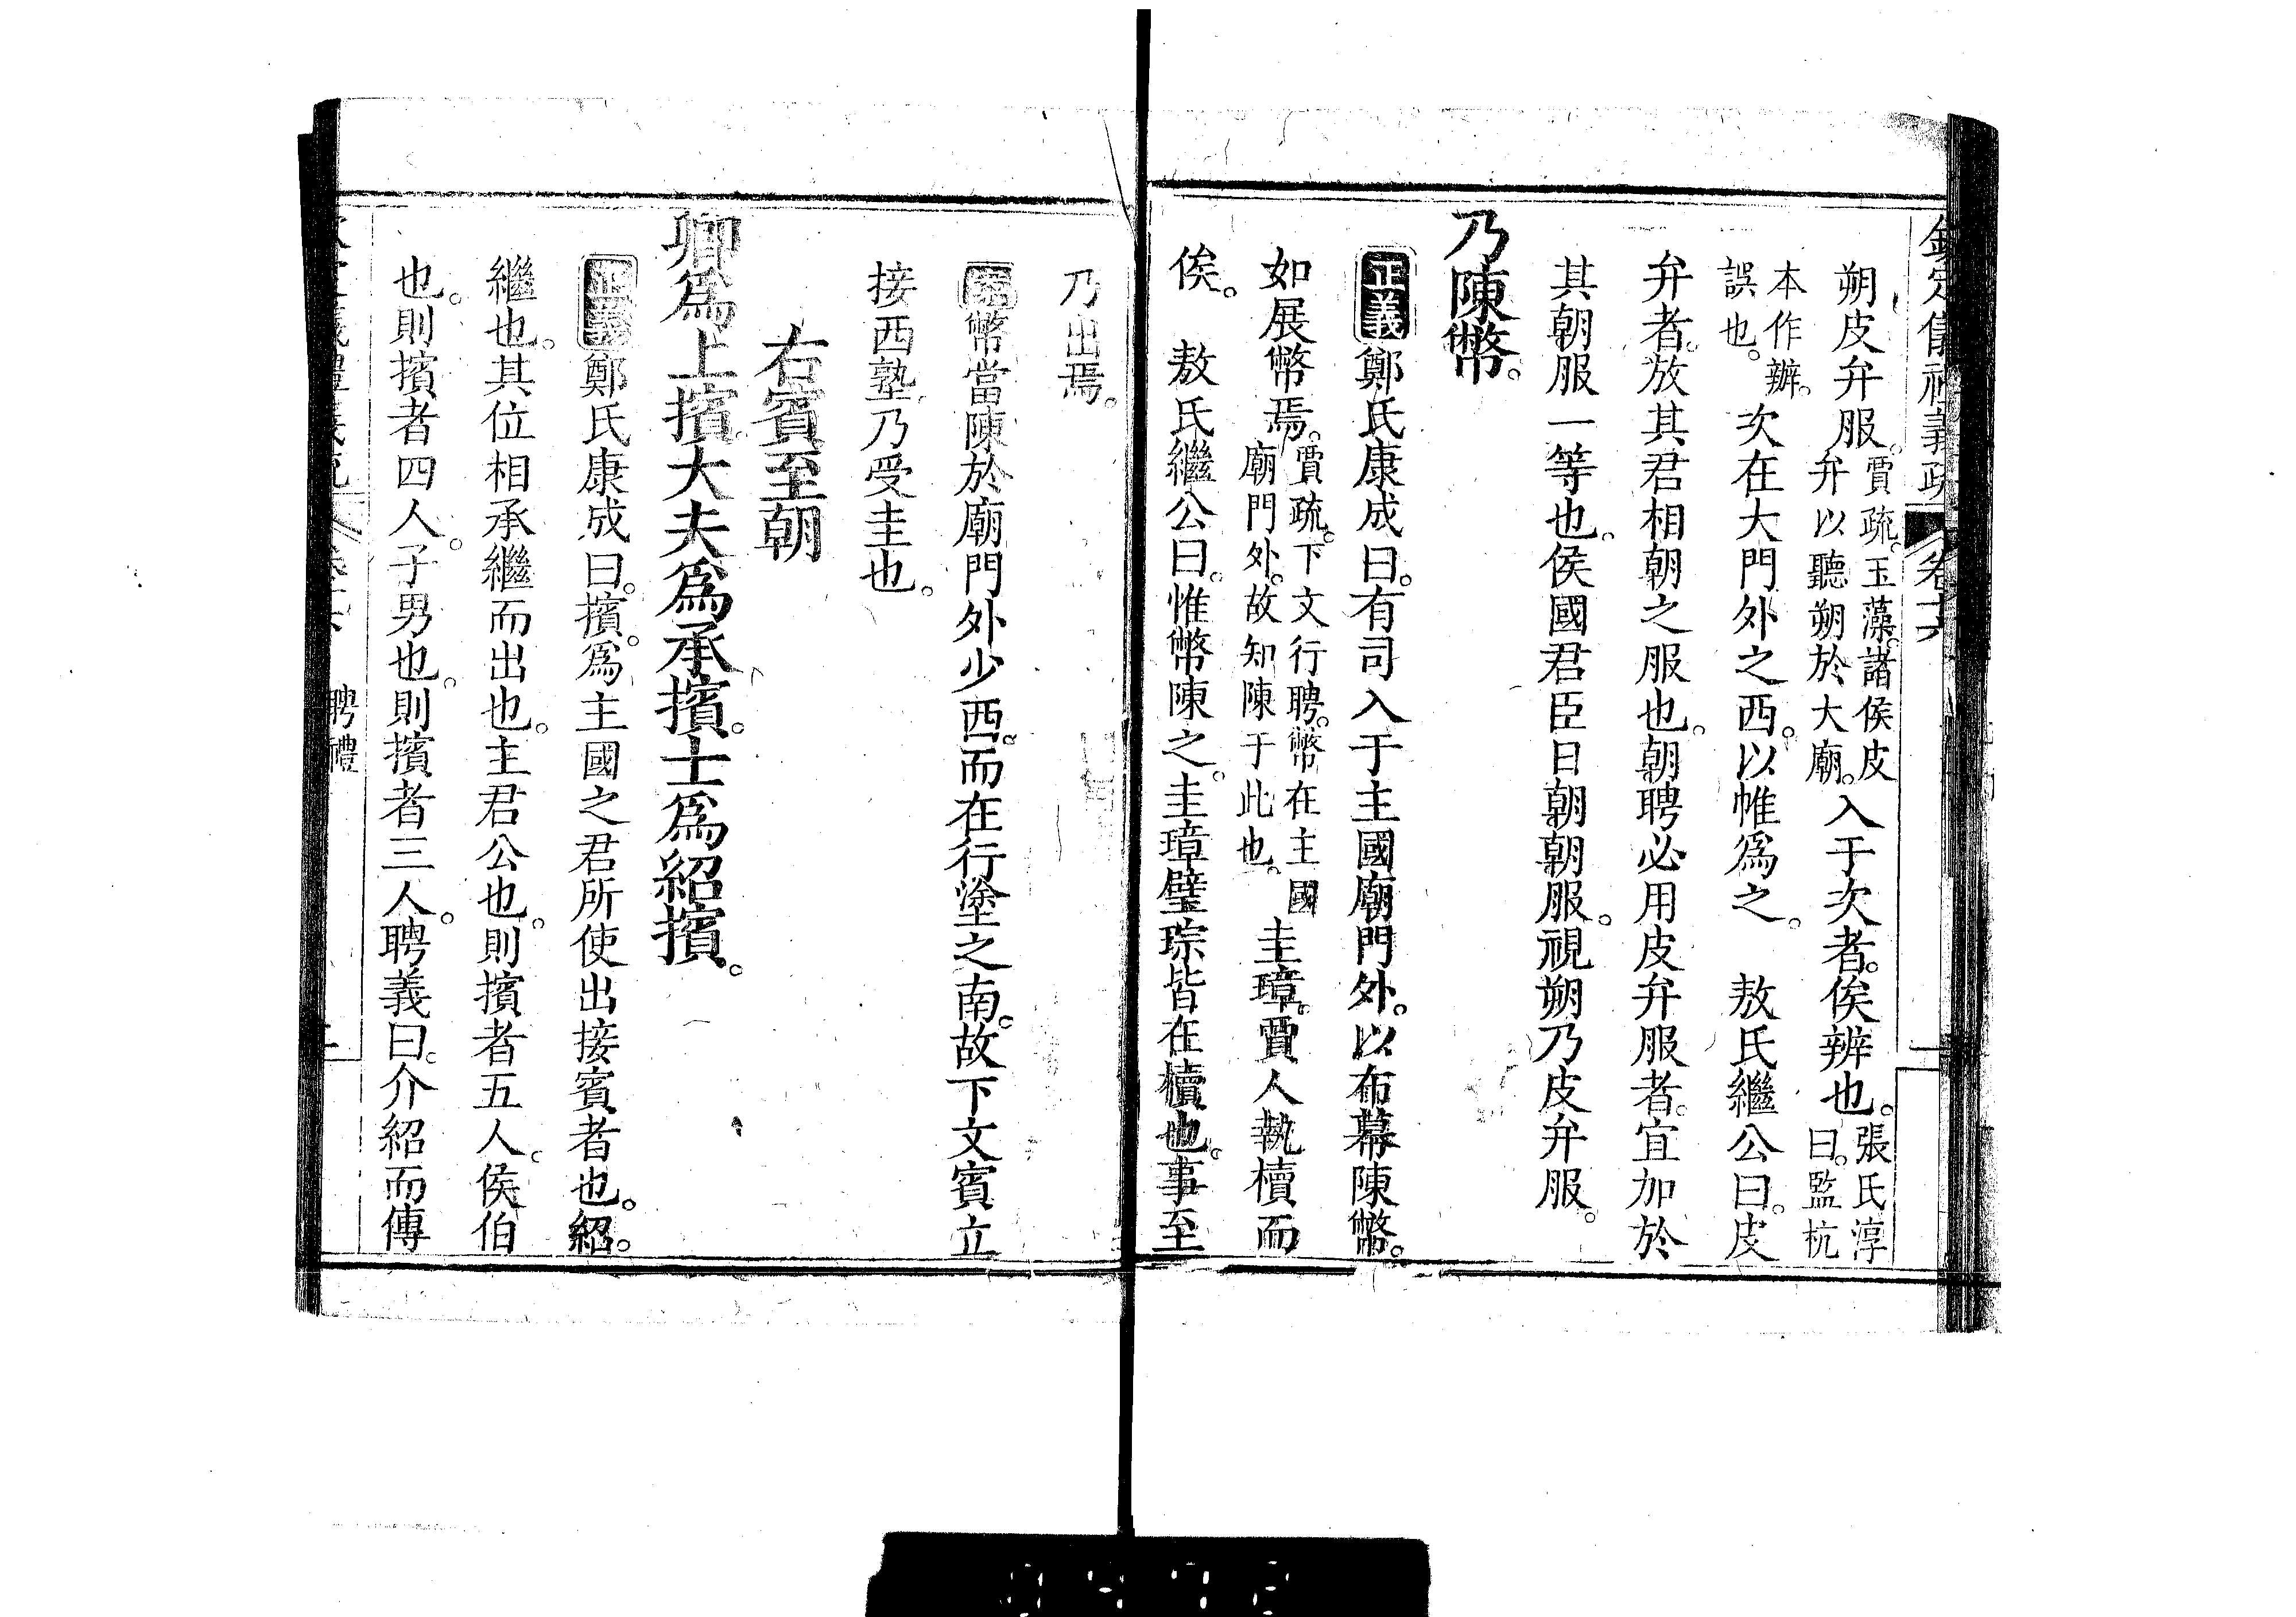 欽定儀禮義疏 卷十六
朔皮弁服。賈疏。玉藻。諸侯皮弁以聽朔於大廟。入于次者。俟辨也。張氏淳曰。監杭
本作辦。誤也。次在大門外之西。以帷爲之。　敖氏繼公曰。皮
弁者。放其君相朝之服也。朝聘必用皮弁服者。宜加於
其朝服一等也。侯國君臣日朝朝服。視朔乃皮弁服。
乃陳幣。
正義鄭氏康成曰。有司入于主國廟門外。以布幕陳幣。
如展幣焉。賈疏。下文行聘。幣在主國廟門外。故知陳于此也。圭璋。賈人執櫝而
俟。　敖氏繼公曰。惟幣陳之。圭璋璧琮皆在櫝也。事至
乃出焉。
幣當陳於廟門外少西。而在行塗之南。故下文賓立
接西塾。乃受圭也。
右賓至朝
卿爲上擯。大夫爲承擯。士爲紹擯。
正義鄭氏康成曰。擯。爲主國之君所使出接賓者也。紹。
繼也。其位相承繼而出也。主君公也。則擯者五人。侯伯
也。則擯者四人。子男也。則擯者三人。聘義曰。介紹而傳
聘禮